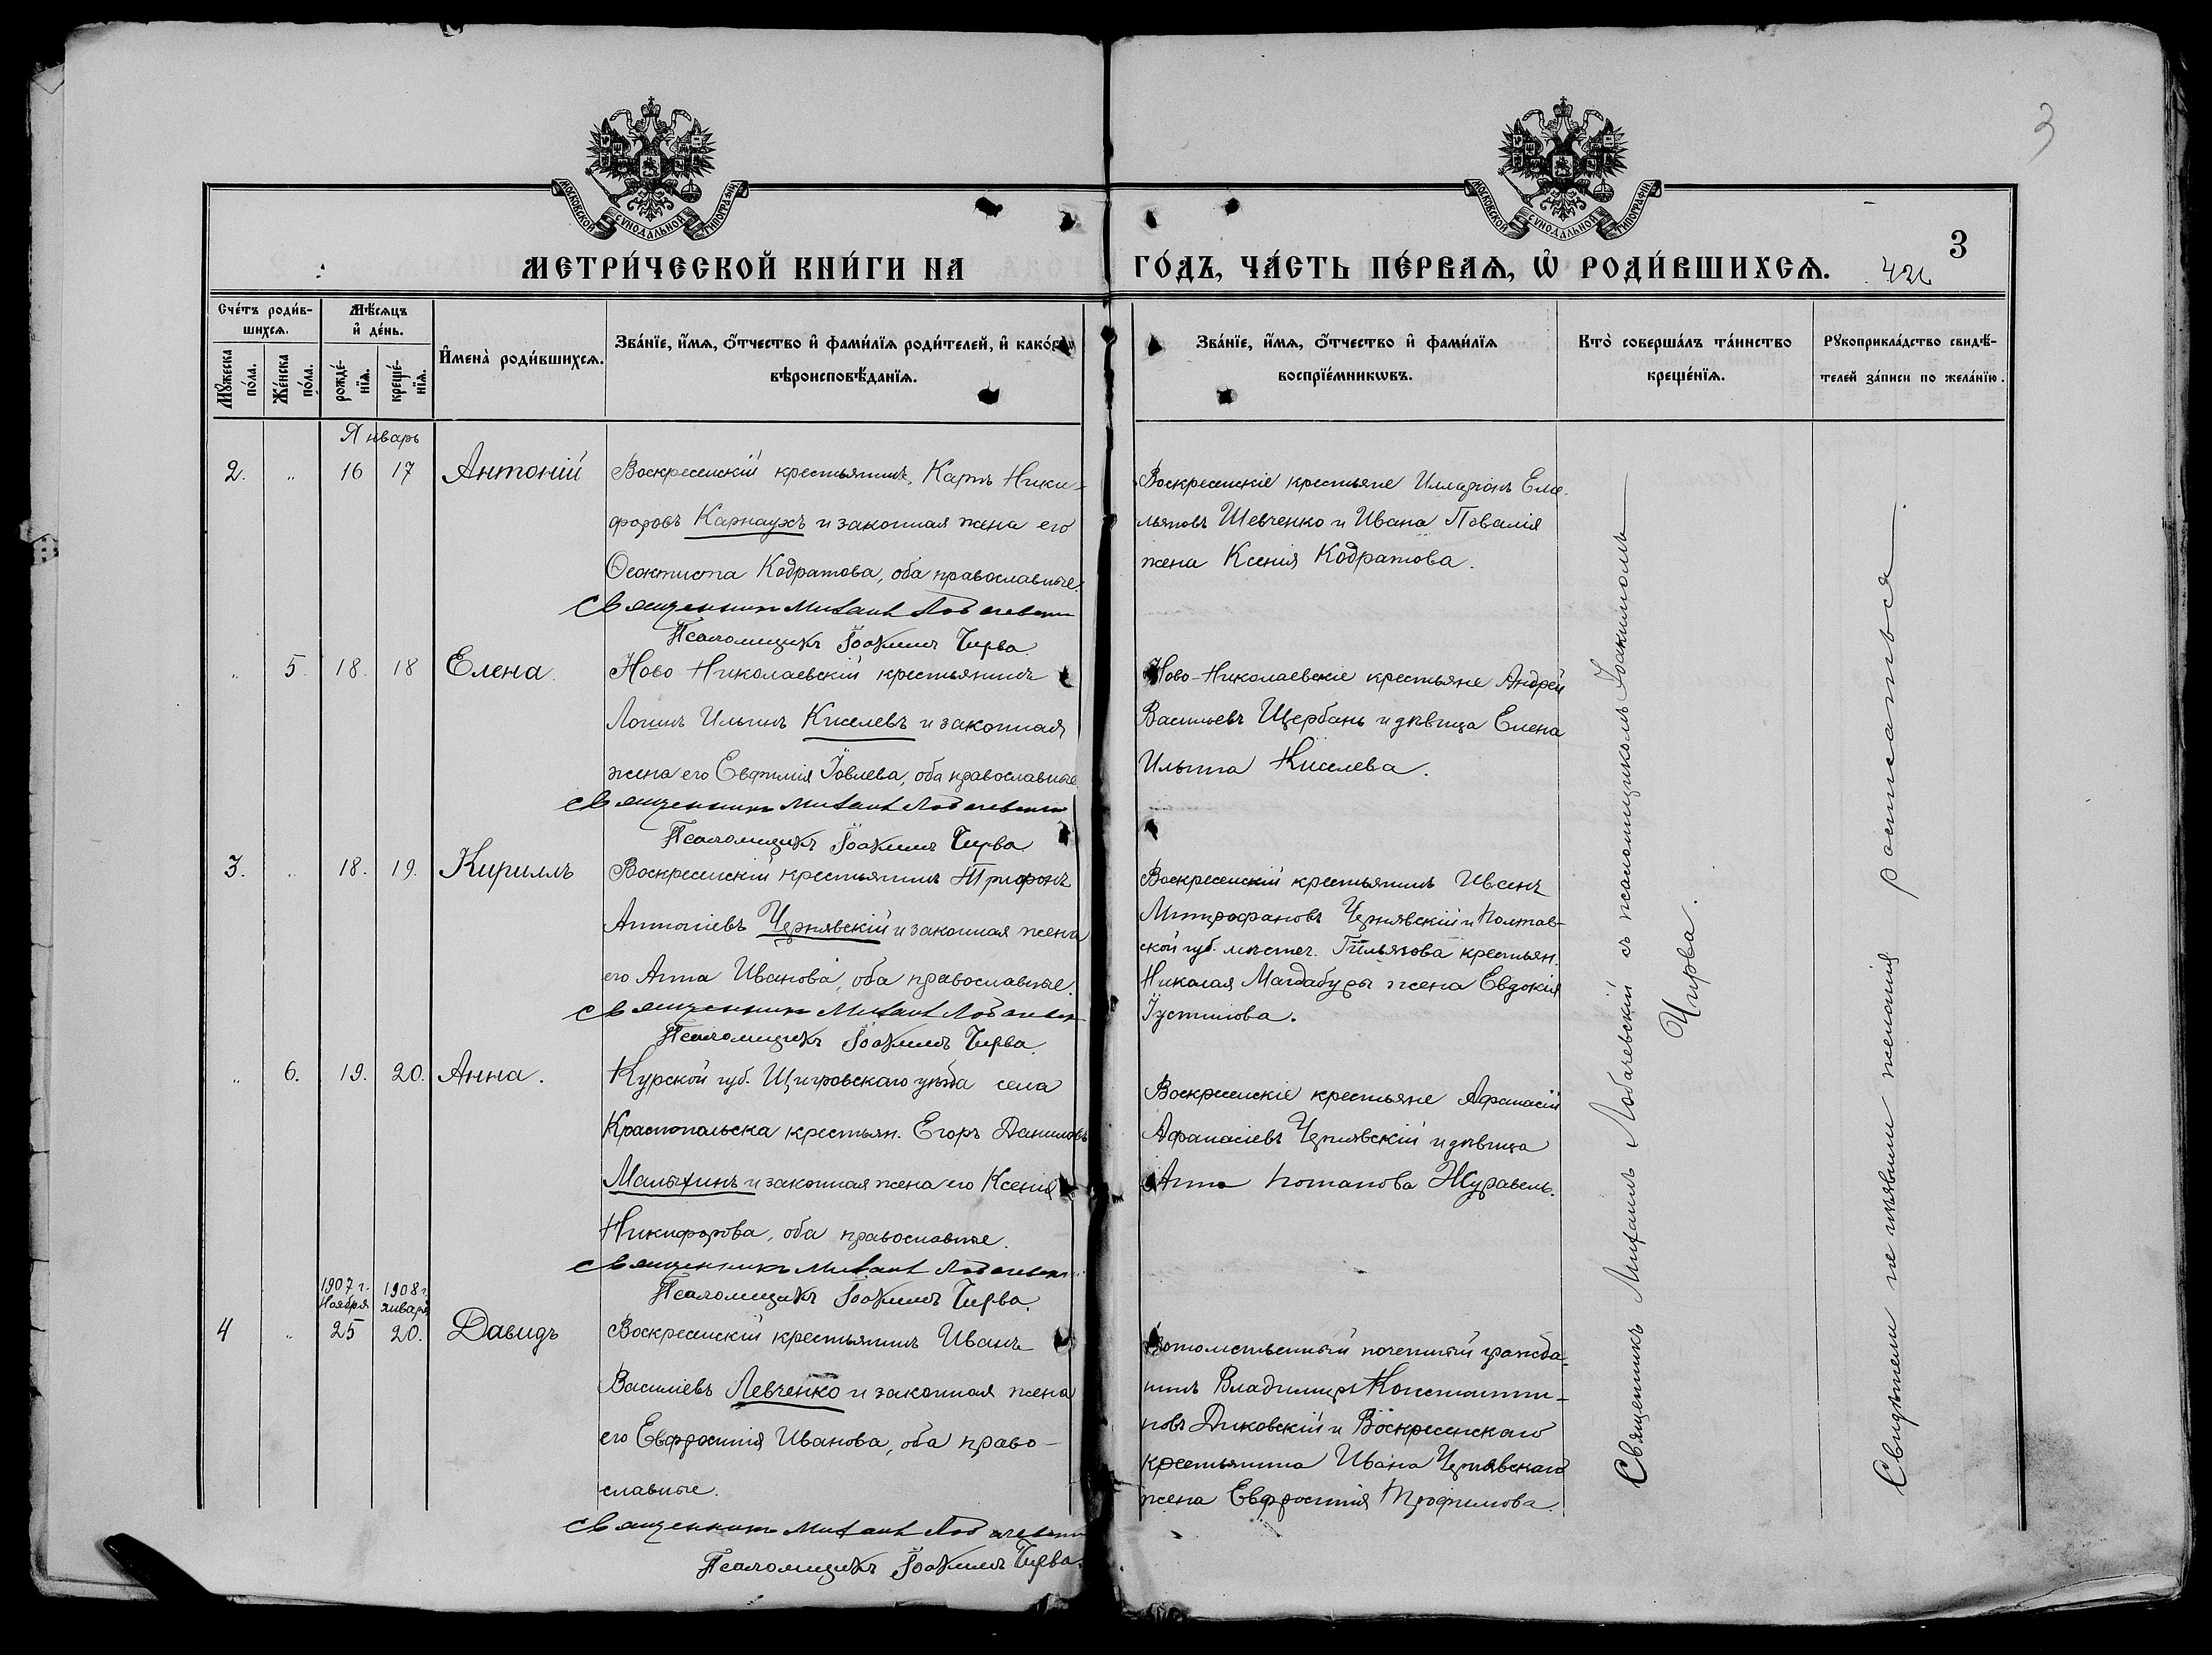 3
МОСКОВСКОЙ СѴНОДАЛЬНОЙ ТИПОГРАФІИ
МОСКОВСКОЙ СѴНОДАЛЬНОЙ ТИПОГРАФІИ
3
МЕТРИ́ЧЕСКОЙ КНИ́ГИ НА
ГО́ДЪ, ЧА́СТЬ ПЕ́РВАѦ, Ѡ҆ РОДИ́ВШИХСѦ.
Сче́тъ роди́в-
шихсѧ.
Мꙋжеска
по́ла.
Же́нска
по́ла.
Мѣ́сѧцъ
и҆ де́нь.
рожде́-
нїѧ.
креще́-
нїѧ.
И҆мена̀ роди́вшихсѧ.
Зва́нїе, и҆́мѧ, ѻ҆́тчество и҆ фами́лїѧ роди́телей, и҆ како́гѡ
вѣроисповѣ́данїѧ.
Зва́нїе, и҆́мѧ, ѻ҆́тчество и҆ фами́лїѧ
воспрїе́мникѡвъ.
Кто̀ соверша́лъ та́инство
креще́нїѧ.
Рꙋкоприкла́дство свидѣ́-
телей за́писи по жела́нїю.
Январь
2. " 16 17 Антоній
Воскресенскій крестьянинъ, Карпъ Ники-
форовъ Карнаухъ и законная жена его
Ѳеоктиста Кодратова, оба православные.
Священникъ Михаилъ Лобачевскій
Псаломщикъ Іоакимъ Чирва.
Воскресенскіе крестьяне Илларіонъ Еме-
льяновъ Шевченко и Ивана Повалія
жена Ксенія Кодратова.
" 5. 18. 18 Елена.
Ново Николаевскій крестьянинъ
Логинъ Ильинъ Киселевъ и законная
жена его Евфимія Іовлева, оба православные
Священникъ Михаилъ Лобачевскій
Псаломщикъ Іоакимъ Чирва.
Ново-Николаевскіе крестьяне Андрей
Васильевъ Щербань и дѣвица Елена
Ильина Киселева.
3. " 18. 19. Кириллъ
Воскресенскій крестьянинъ Трифонъ
Антоніевъ Чернявскій и законная жена
его Анна Иванова, оба православные.
Священникъ Михаилъ Лобачевскій
Псаломщикъ Іоакимъ Чирва.
Воскресенскій крестьянинъ
Митрофановъ Чернявскій и Полтав-
ской губ. мѣстеч. крестьян.
Николая Магдабуры жена Евдокія
Іустинова.
" 6. 19. 20. Анна.
Курской губ. Щигровскаго уѣзда села
Краснопольска крестьян. Егоръ Даниловъ
Малыхинъ и законная жена его Ксенія
Никифорова, оба православные.
Священникъ Михаилъ Лобачевскій
Псаломщикъ Іоакимъ Чирва.
Воскресенскіе крестьяне Афанасій
Афанасіевъ Чернявскій и дѣвица
Анна Потапова Журавель.
1907 г. 1908 г.
Ноября января
4 " 25 20. Давидъ
Воскресенскій крестьянинъ Иванъ
Василіевъ Левченко и законная жена
его Евфросинія Иванова, оба право-
славные.
Священникъ Михаилъ Лобачевскій
Псаломщикъ Іоакимъ Чирва.
Потомственный почетный гражда-
нинъ Владимиръ Константи-
новъ Диковскій и Воскресенскаго
крестьянина Ивана Чернявскаго
жена Евфросинія Трофимова.
Священникъ Михаилъ Лобачевскій съ псаломщикомъ Іоакимомъ
Чирва.
Свидѣтели не изъявили желанія росписаться.